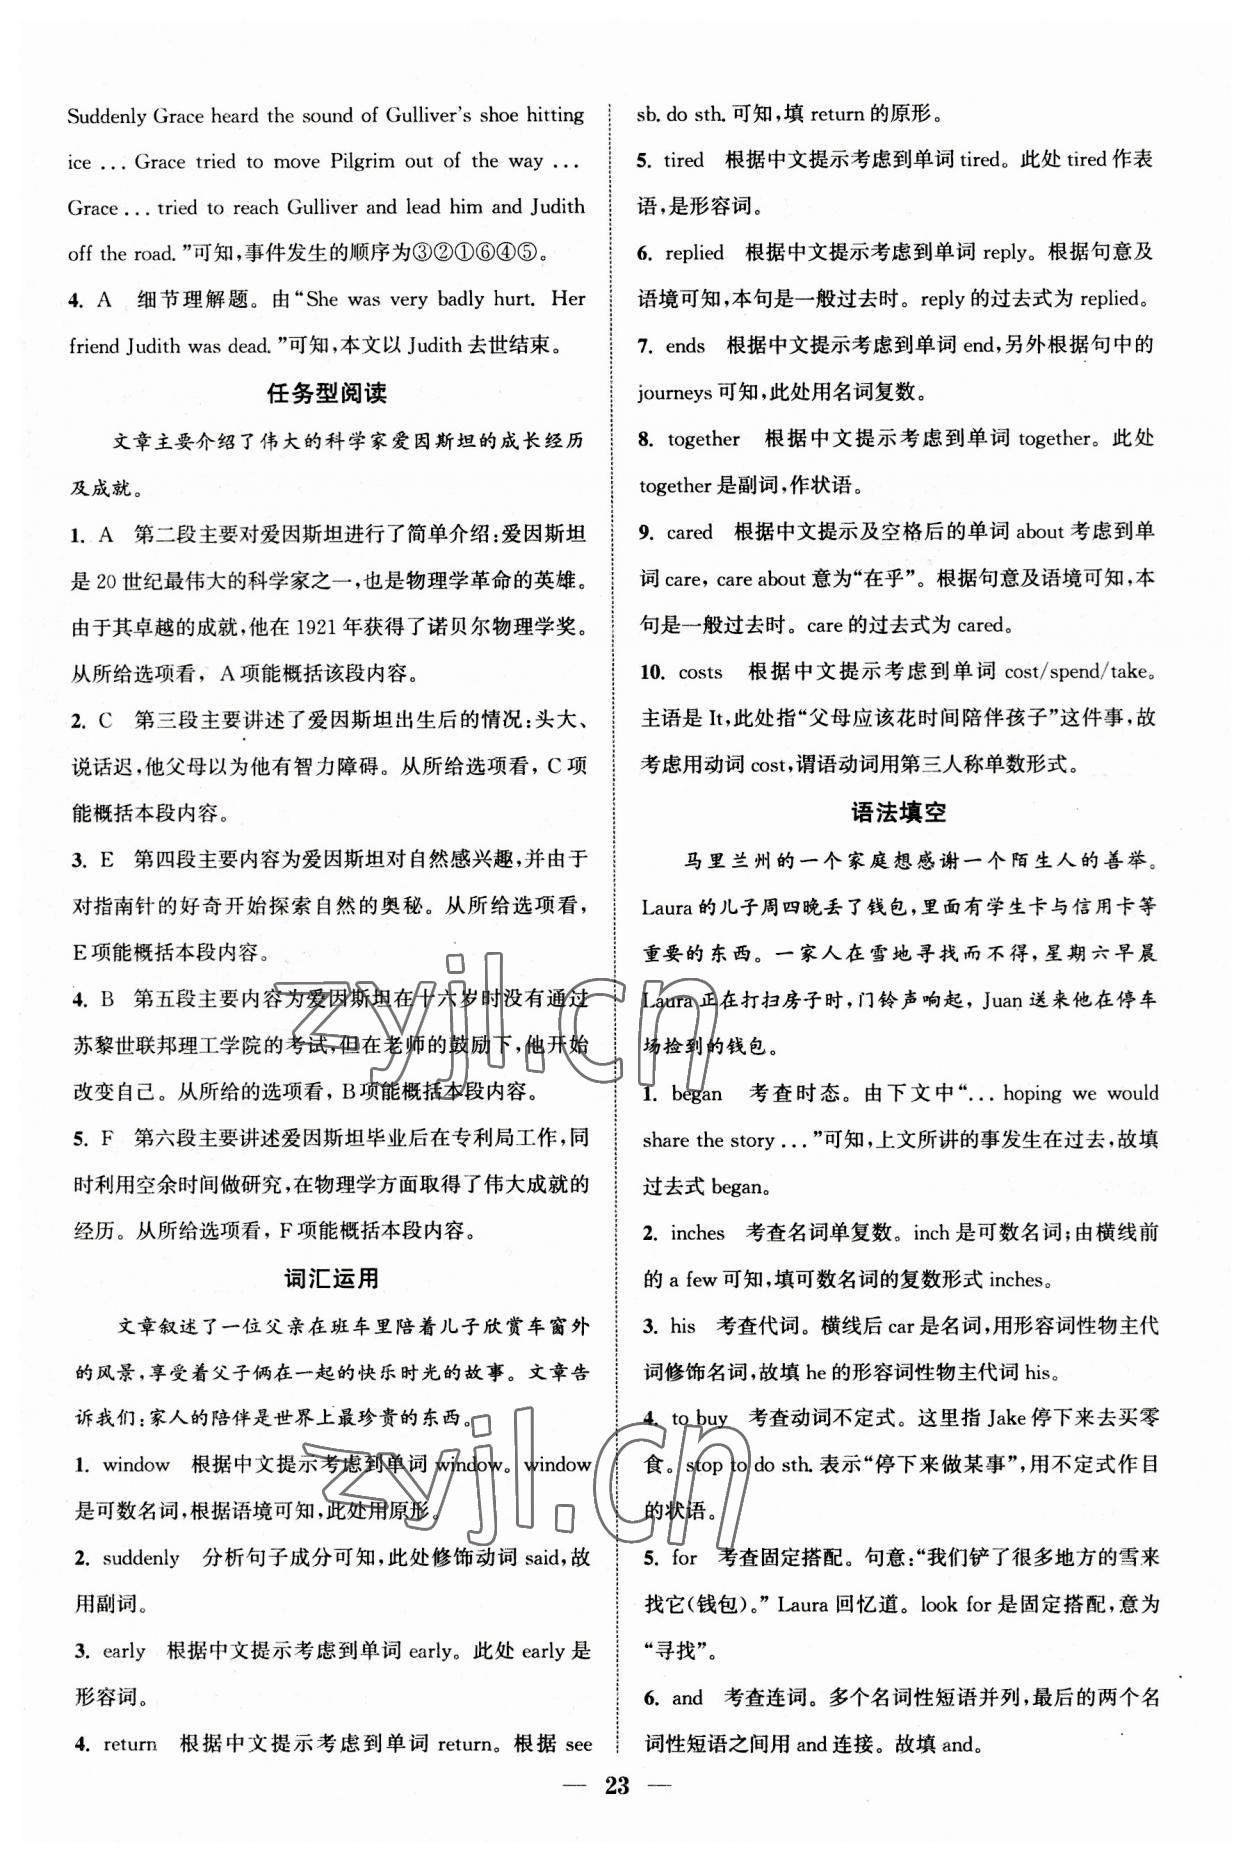 Suddenly Grace heard the sound of Gulliver's shoe hitting
ice ... Grace tried to move Pilgrim out of the way ...
Grace ... tried to reach Gulliver and lead him and Judith
off the road. ”可知,事件发生的顺序为③②①⑥④⑤。
4. A 细节理解题。由“She was very badly hurt. Her
friend Judith was dead. ”可知,本文以 Judith 去世结束。
任务型阅读
文章主要介绍了伟大的科学家爱因斯坦的成长经历
及成就。
1. A 第二段主要对爱因斯坦进行了简单介绍:爱因斯坦
是 20 世纪最伟大的科学家之一,也是物理学革命的英雄。
由于其卓越的成就,他在 1921 年获得了诺贝尔物理学奖。
从所给选项看, A 项能概括该段内容。
2. C 第三段主要讲述了爱因斯坦出生后的情况:头大、
说话迟,他父母以为他有智力障碍。从所给选项看, C 项
能概括本段内容。
3. E 第四段主要内容为爱因斯坦对自然感兴趣,并由于
对指南针的好奇开始探索自然的奥秘。从所给选项看,
E 项能概括本段内容。
4. B 第五段主要内容为爱因斯坦在十六岁时没有通过
苏黎世联邦理工学院的考试,但在老师的鼓励下,他开始
改变自己。从所给的选项看, B 项能概括本段内容。
5. F 第六段主要讲述爱因斯坦毕业后在专利局工作,同
时利用空余时间做研究,在物理学方面取得了伟大成就的
经历。从所给选项看, F 项能概括本段内容。
词汇运用
文章叙述了一位父亲在班车里陪着儿子欣赏车窗外
的风景,享受着父子俩在一起的快乐时光的故事。文章告
诉我们:家人的陪伴是世界上最珍贵的东西。
1. window 根据中文提示考虑到单词 window。window
是可数名词,根据语境可知,此处用原形。
2. suddenly 分析句子成分可知,此处修饰动词 said,故
用副词。
3. early 根据中文提示考虑到单词 early。此处 early 是
形容词。
4. return 根据中文提示考虑到单词 return。根据 see
sb. do sth. 可知,填 return 的原形。
5. tired 根据中文提示考虑到单词 tired。此处 tired 作表
语,是形容词。
6. replied 根据中文提示考虑到单词 reply。根据句意及
语境可知,本句是一般过去时。reply 的过去式为 replied。
7. ends 根据中文提示考虑到单词 end,另外根据句中的
journeys 可知,此处用名词复数。
8. together 根据中文提示考虑到单词 together。此处
together 是副词,作状语。
9. cared 根据中文提示及空格后的单词 about 考虑到单
词 care, care about 意为“在乎”。根据句意及语境可知,本
句是一般过去时。care 的过去式为 cared。
10. costs 根据中文提示考虑到单词 cost/spend/take。
主语是 It,此处指“父母应该花时间陪伴孩子”这件事,故
考虑用动词 cost,谓语动词用第三人称单数形式。
语法填空
马里兰州的一个家庭想感谢一个陌生人的善举。
Laura 的儿子周四晚丢了钱包,里面有学生卡与信用卡等
重要的东西。一家人在雪地寻找而不得,星期六早晨
Laura 正在打扫房子时,门铃声响起, Juan 送来他在停车
场捡到的钱包。
1. began 考查时态。由下文中“... hoping we would
share the story ... ”可知,上文所讲的事发生在过去,故填
过去式 began。
2. inches 考查名词单复数。inch 是可数名词;由横线前
的 a few 可知,填可数名词的复数形式 inches。
3. his 考查代词。横线后 car 是名词,用形容词性物主代
词修饰名词,故填 he 的形容词性物主代词 his。
4. to buy 考查动词不定式。这里指 Jake 停下来去买零
食。stop to do sth. 表示“停下来做某事”,用不定式作目
的状语。
5. for 考查固定搭配。句意:“我们铲了很多地方的雪来
找它(钱包)。” Laura 回忆道。look for 是固定搭配,意为
“寻找”。
6. and 考查连词。多个名词性短语并列,最后的两个名
词性短语之间用 and 连接。故填 and。
— 23 —
zyjl.cn
zyjl.cn